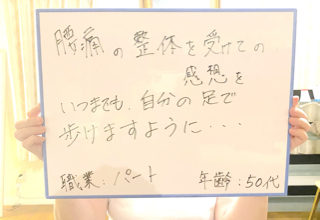 腰痛の整体を受けての
感想を
いつまでも、自分の足で
歩けますように・・・
職業：パート 年齢：50代